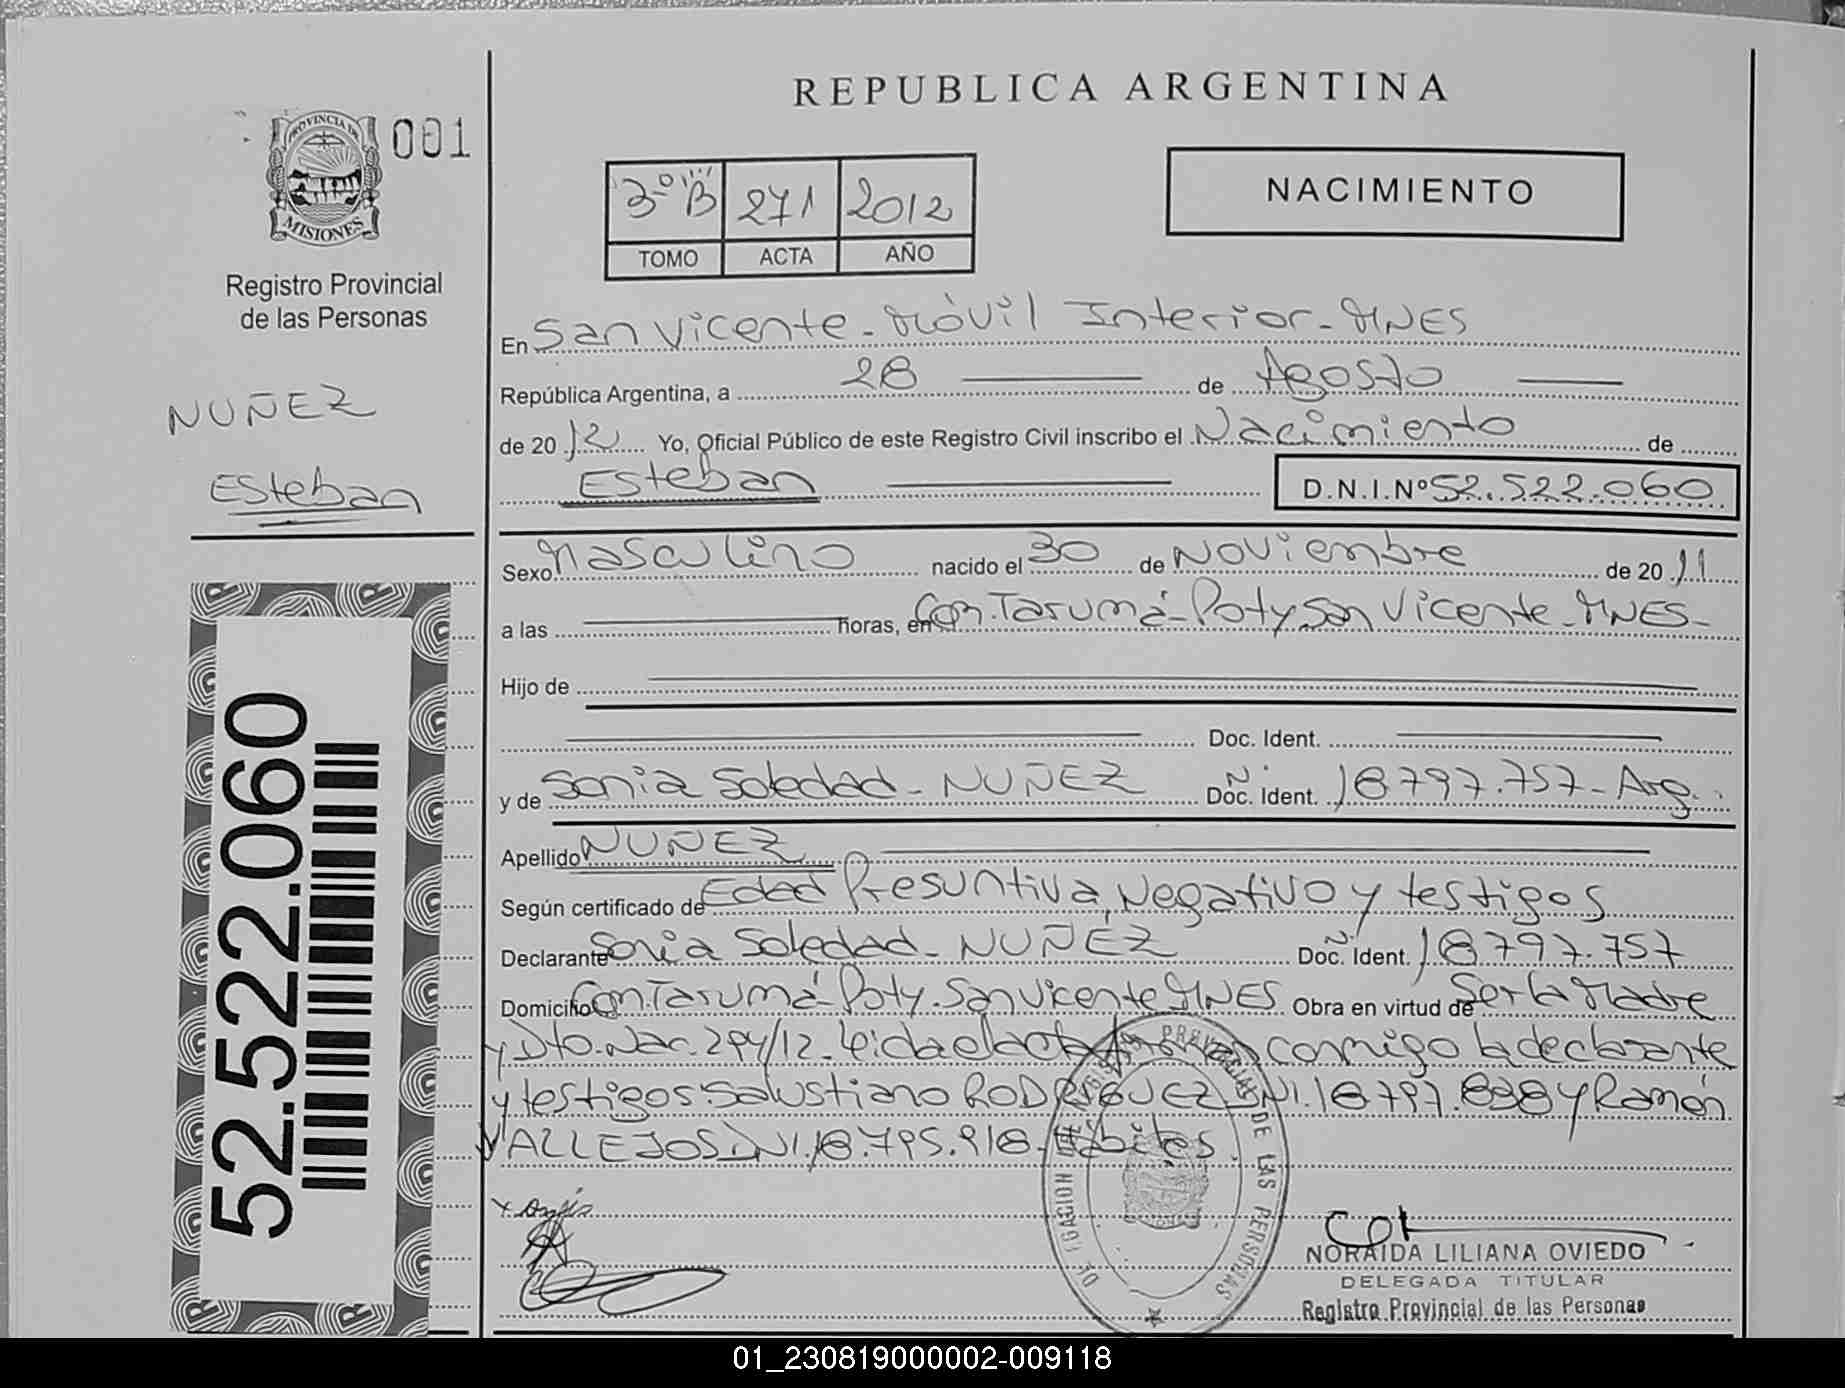 REPUBLICA ARGENTINA
PROVINCIA DE
MISIONES
001
Registro Provincial
de las Personas
NUÑEZ
Esteban
52.522.060
3º "B" 271 2012
TOMO ACTA AÑO
NACIMIENTO
En San Vicente - Móvil Interior - MNES
República Argentina, a 28 de Agosto
de 2012 Yo, Oficial Público de este Registro Civil inscribo el Nacimiento de
Esteban D.N.I.Nº 52.522.060
Sexo Masculino nacido el 30 de Noviembre de 2011
a las horas, en Com. Tarumá - Poty San Vicente - MNES -
Hijo de
Doc. Ident.
y de Sonia Soledad - NUÑEZ Doc. Ident. 18797.757 - Arg.
Apellido NUÑEZ
Según certificado de Edad Presuntiva, Negativo y testigos
Declarante Sonia Soledad - NUÑEZ Doc. Ident. 18797.757
Domicilio Com. Tarumá - Poty. San Vicente MNES Obra en virtud de Ser la Madre
y Dto. Nac. 294/12. Leida el acta conmigo la declarante
y testigos: Salustiano RODRIGUEZ DNI. 18797.838 y Ramón
VALLEJOS DNI. 18.795.918 - Hábiles.
DELEGACION DE REGISTRO PROVINCIAL DE LAS PERSONAS
NORAIDA LILIANA OVIEDO
DELEGADA TITULAR
Registro Provincial de las Personas
01_230819000002-009118